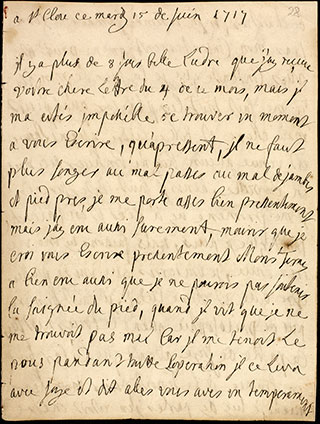 a St Clou ce mardy 15 de juin 1717
28
il y a plus de 8 jours belle Ludre que j'ay receue
vostre chere Lettre du 4 de ce mois, mais il
ma estés impossible de trouver un moment
a vous Escrire, qu'apressent, il ne faut
plus songer au mal passes au mal de jambes
et pied pres, je me porte asses bien pressentement
mais j'ay cru aussi surement, mourir que je
croi vous Escrire pressentement Monsr
a bien cru aussi que je ne pourois pas
la saignée du pied, quand il vit que je ne
me trouvoit pas mal Car il me tenoit Le
pous pandant toutte Loperation il ce leva
avec joye et dit alles vous aves un temperament